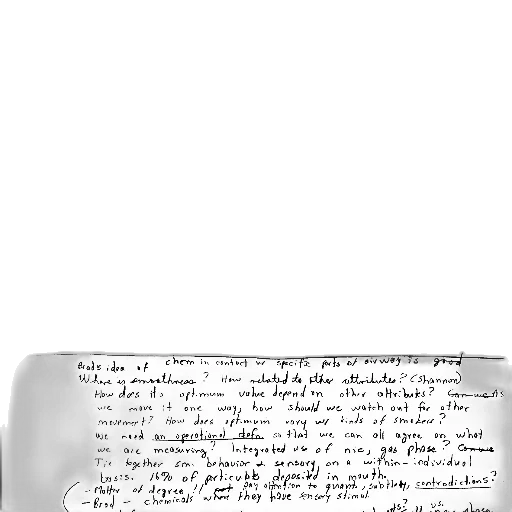 Brad's idea of chem in contact w/ specific parts of airway is good
Where is smoothness? How related to other attributes? (Shannon)
How does its optimum value depend on other attributes?
we move it one way, how should we watch out for other
movement? How does optimum vary w/ kinds of smokers?
We need an operational defn so that we can all agree on what
we are measuring? Integrated vs of nic, gas phase?
Tie together sm. behavior & sensory, on a within-individual
basis. 16% of particulate deposited in mouth.
- Matter of degree, pay attention to quant, subtlety, contradictions?
- Brad - chemicals when they have sensory stimul.
vs.
phase